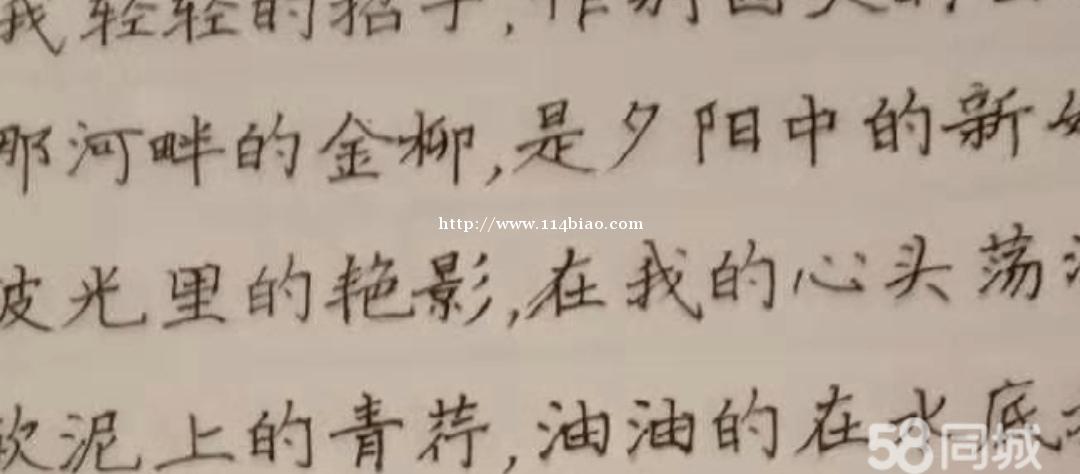 我轻轻的招手,作别西天的
那河畔的金柳,是夕阳中的新
http://www.114biao.com
波光里的艳影,在我的心头荡
软泥上的青荇,油油的在水底
58同城